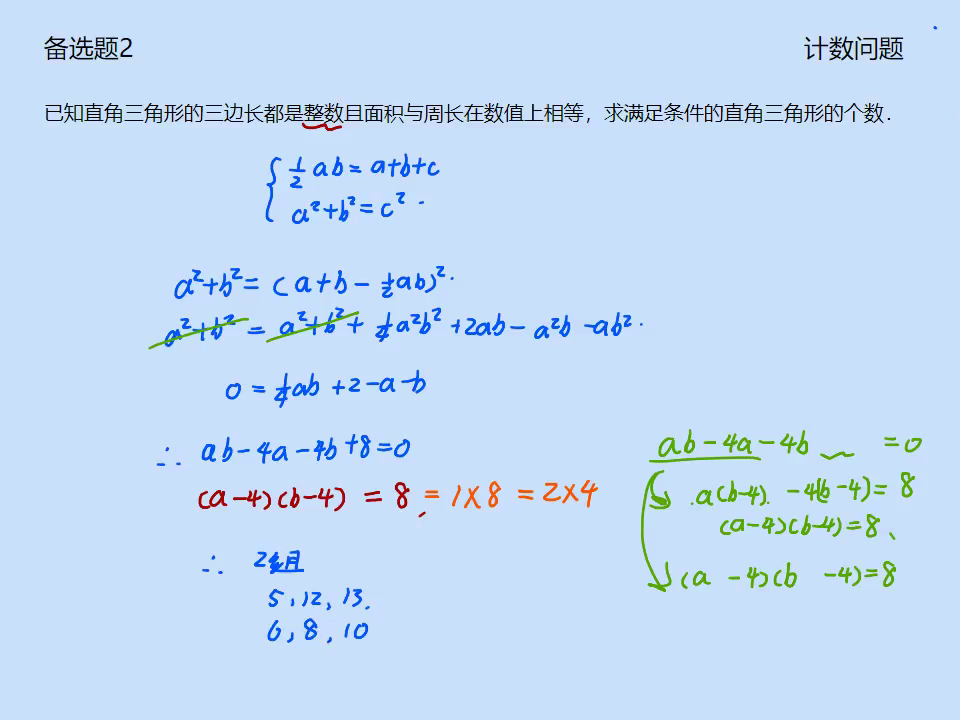 备选题2
计数问题
已知直角三角形的三边长都是整数且面积与周长在数值上相等，求满足条件的直角三角形的个数．
½ab=a+b+c
a²+b²=c².
a²+b²=(a+b-½ab)².
a²+b²=a²+b²+¼a²b²+2ab-a²b-ab².
0=¼ab+2-a-b
∴ ab-4a-4b+8=0
(a-4)(b-4)=8=1×8=2×4
∴ 2
5,12,13.
6,8,10
ab-4a-4b =0
a(b-4)-4(b-4)=8
(a-4)(b-4)=8、
(a -4)(b -4)=8